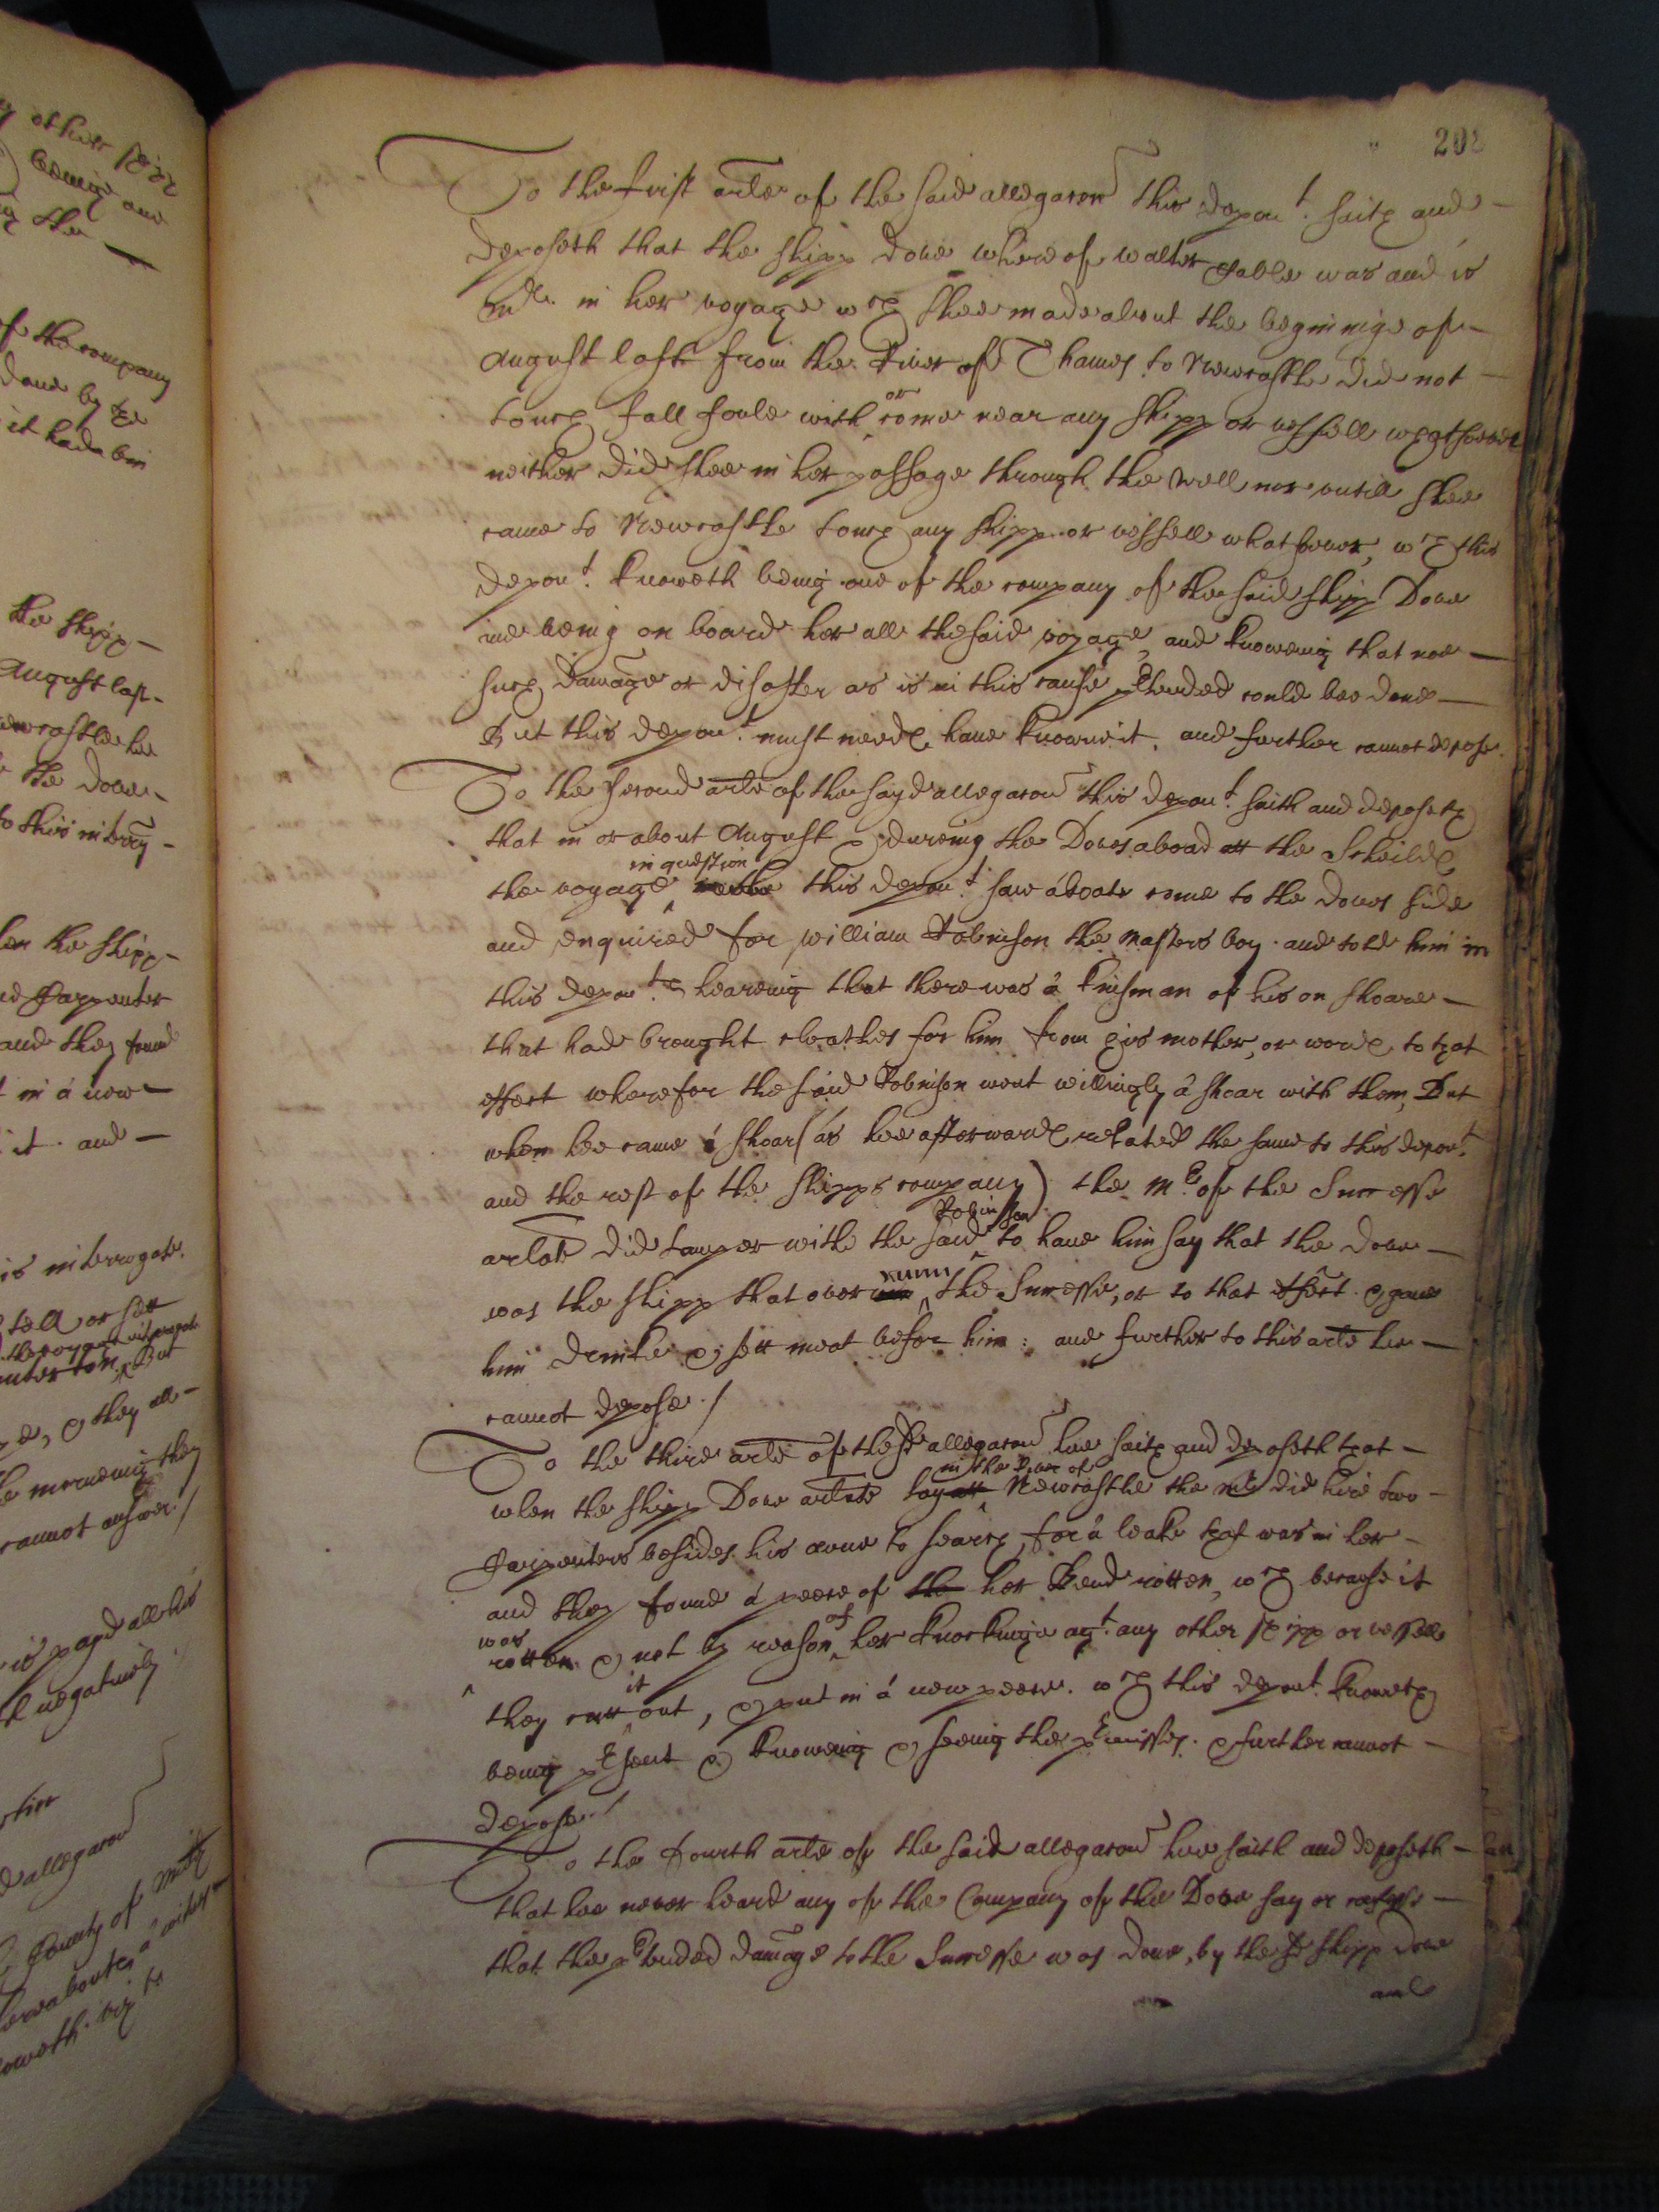 other shipp
being and
the
of the company
done by the
it had bin
the shipp
August last
Newcastle hee
the Dove
to this interry
the shipp
Carpenter
and they found
in á new
it. and
is interrogate.
tell or sett
they all
the morneing they
cannot answer./
is payd all his
negatively
allegacon
County of Midd
thereabouts á witnes
202
To the first arle of the said allegacon this depont. saith and
deposeth that the shipp Dove whereof walter Cable was and is
mr. in her voyage wch shee made about the beginninge of
August last from the River of Thames to Newcastle did not
touch fall foule with or come near any shipp or vessell whatsoever
neither did shee in her passage through the Swell nor untill shee
came to Newcastle touch any shipp or vessell whatsoever, wch this
depont. knoweth being one of the company of the said shipp Dove
and being on board her all the said voyage, and knoweing that noe
such damage or disaster as is in this cause prtended could bee done
But this depont. must needs have knowne it, and further cannot depose.
To the second arle of the sayd allegacon this depont. saith and deposeth
that in or about August dureing the Doves aboad att the Scheilds
the voyage in question this depont. saw á boate come to the Doves side
and enquired for william Robinson the masters boy. and told him in
this deponts. heareing that there was á kinsman of his on shoare
that had brought cloathes for him from his mother, or words to that
effect wherefor the said Robinson went willingly á shoar with them, But
when hee came á shoar (as hee afterwards related the same to this depont.
and the rest of the shipps company) the Mr. of the Successe
arlate did tamper with the said Robinson to have him say that the Dove
was the shipp that over runn the Successe, or to that effect. & gave
him drinke & sett meat before him: and further to this arle hee
cannot depose./
To the third arle of the sd allegacon hee saith and deposeth that
when the shipp Dove arlate lay att in the River of Newcastle the mr did hire two
Carpenters besides his owne to search for á leake that was in her
and they found á peece of the her stend rotten, wch because it
was rotten & not by reason of her knockinge agt. any other shipp or vessell
they cutt it out, & put in á new peece. wch this depont. knoweth
being prsent & knoweing & seeing the prmisses. & further cannot
depose./
To the fourth arle of the said allegacon hee saith and deposeth
that hee never heard any of the Company of the Dove say or confesse
that the prtended damage to the Successe was done, by the sd shipp Dove
and